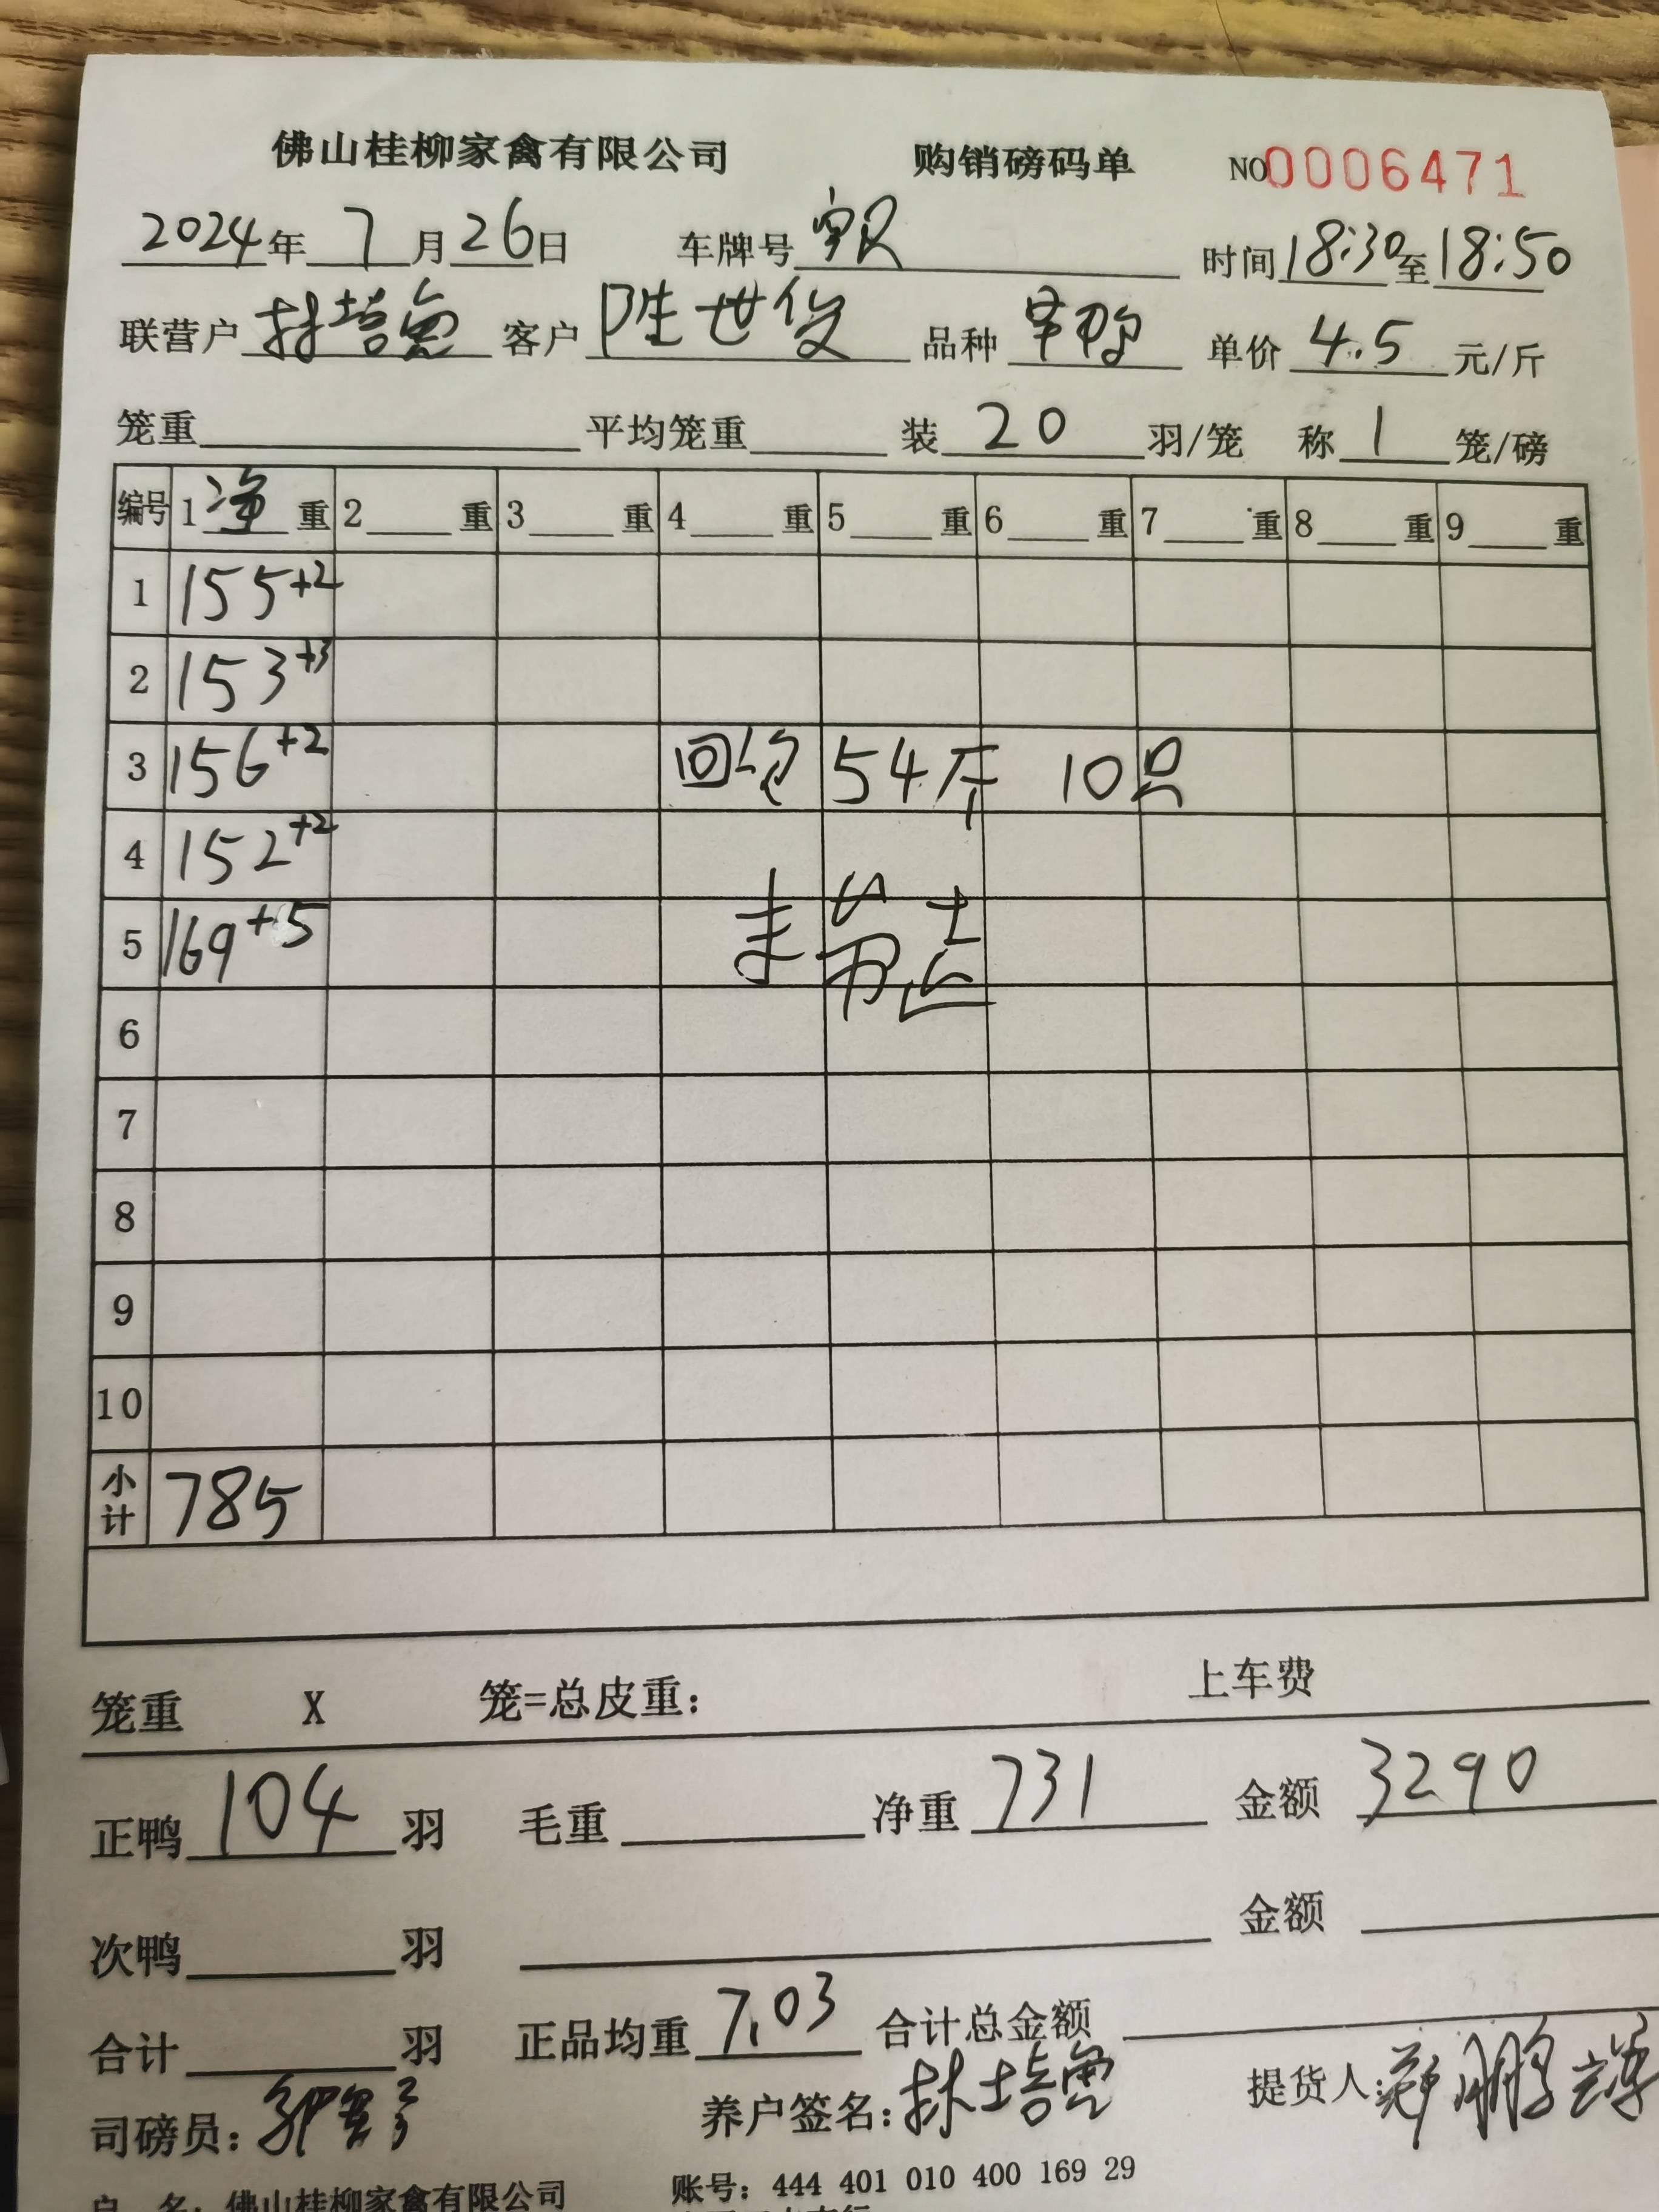 佛山桂柳家禽有限公司 购销磅码单 NO0006471
2024年7月26日 车牌号 时间18:30至18:50
联营户 林培 客户 陈世俊 品种 单价 4.5 元/斤
笼重 平均笼重 装 20 羽/笼 称 1 笼/磅
编号 1 净 重 2 重 3 重 4 重 5 重 6 重 7 重 8 重 9 重
1 155+2
2 153+3
3 156+2 回 54斤 10只
4 152+2
5 169+5
6
7
8
9
10
小计 785
笼重 X 笼=总皮重: 上车费
正鸭 104 羽 毛重 净重 731 金额 3290
次鸭 羽 金额
合计 羽 正品均重 7.03 合计总金额
司磅员: 养户签名: 林培 提货人: 郑鹏辉
户 名: 佛山桂柳家禽有限公司 账号: 444 401 010 400 169 29